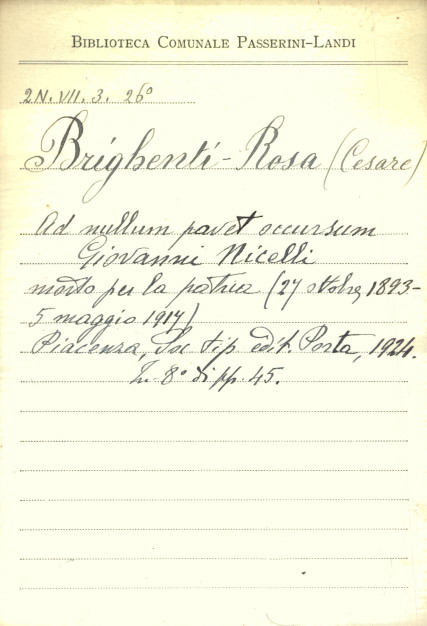 BIBLIOTECA COMUNALE PASSERINI-LANDI
2N. VII. 3. 26°
Brighenti-Rosa (Cesare)
Ad nullum pavet occursum
Giovanni Nicelli
morto per la patria (27 ottobre 1893-
5 maggio 1917)
Piacenza, Soc tip. edit. Porta, 1924.
In-8° di pp. 45.